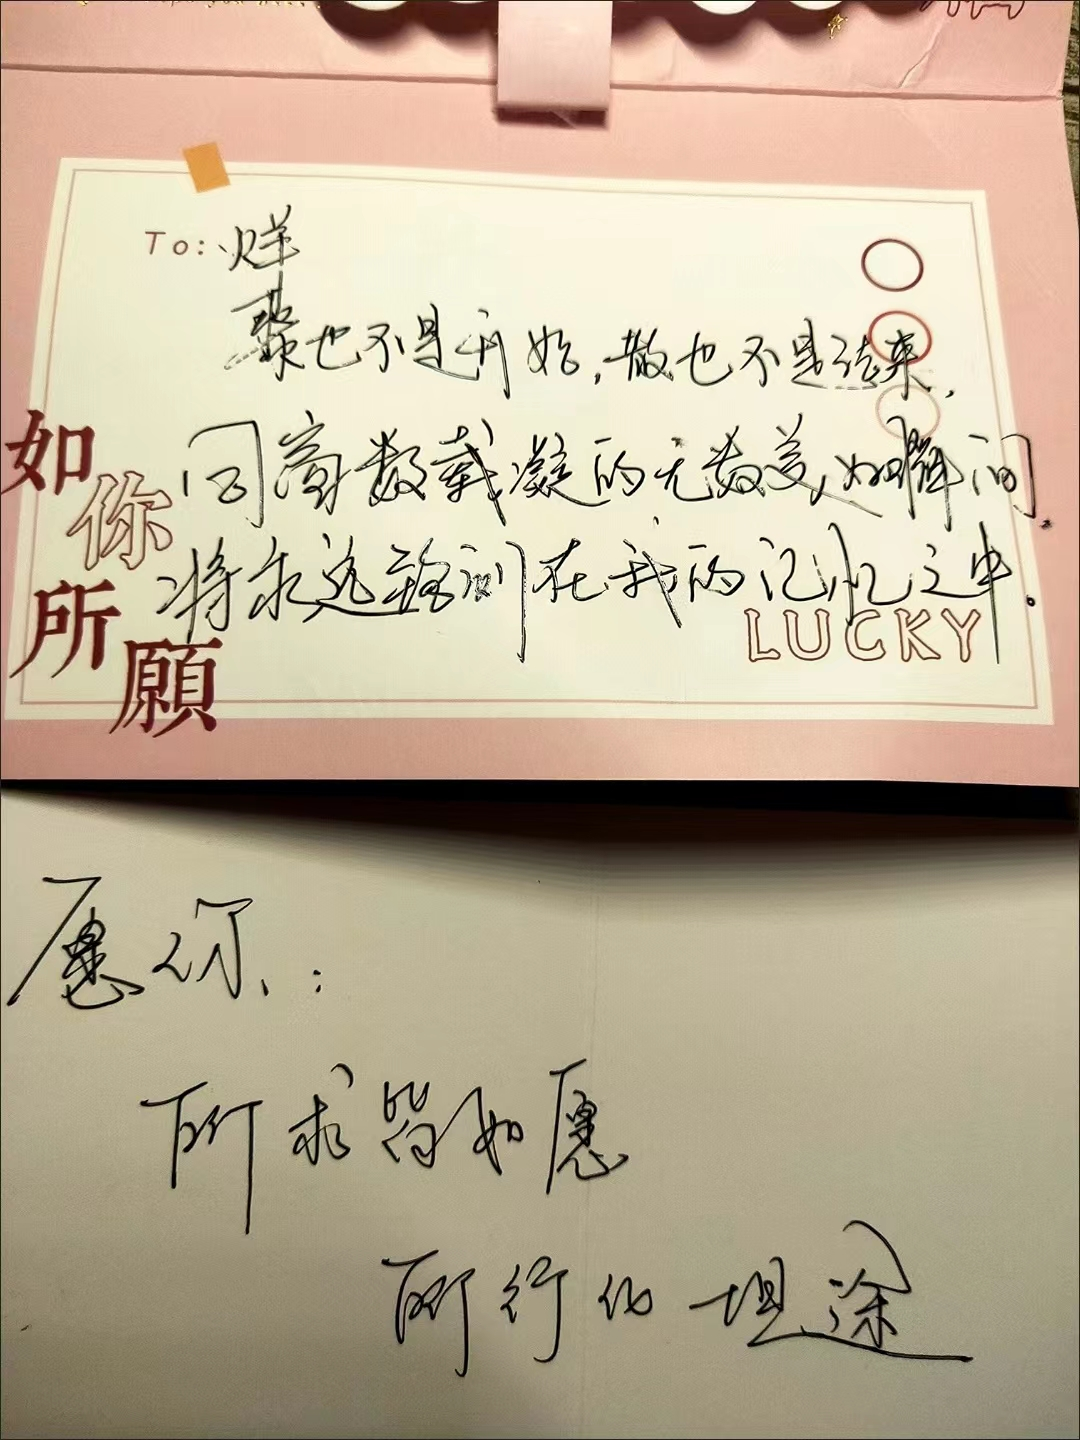 To: 烊
聚也不是开始,散也不是结束,
同窗数载凝的无数美好瞬间,
将永远铭刻在我的记忆之中。
如你所願
LUCKY
愿你:
所求皆如愿
所行化坦途